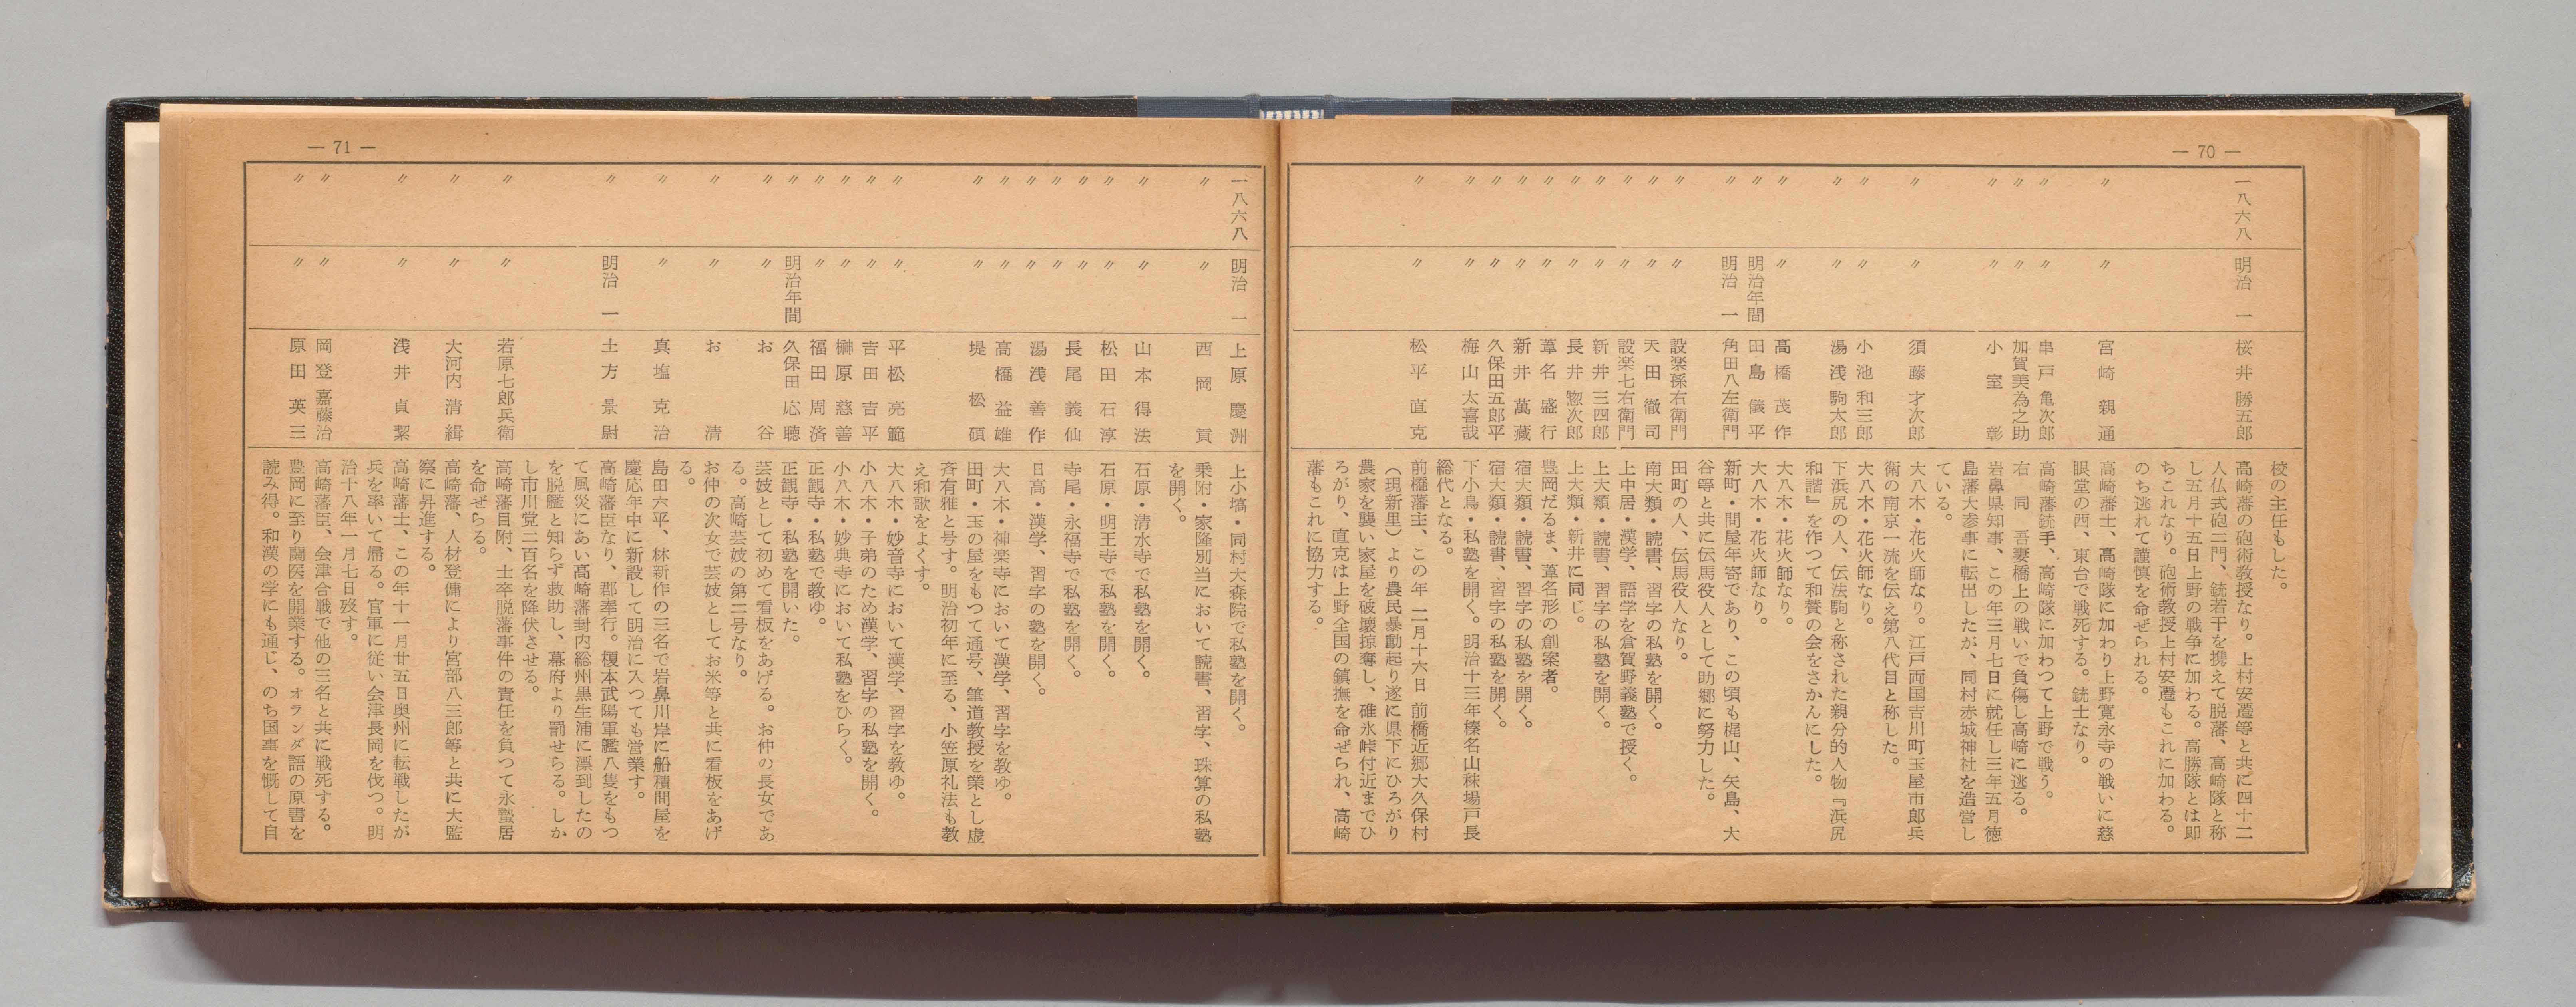 — 70 —
校の主任もした。
一八六八 明治 一 桜井勝五郎 高崎藩の砲術教授なり。上村安遷等と共に四十二
人仏式砲二門、銃若干を携えて脱藩、高崎隊と称
し五月十五日上野の戦争に加わる。高勝隊とは即
ちこれなり。砲術教授上村安遷もこれに加わる。
のち逃れて謹慎を命ぜられる。
〃 〃 宮崎親通 高崎藩士、高崎隊に加わり上野寛永寺の戦いに慈
眼堂の西、東台で戦死する。銃士なり。
〃 〃 串戸亀次郎 高崎藩銃手、高崎隊に加わつて上野で戦う。
〃 〃 加賀美為之助 右 同 吾妻橋上の戦いで負傷し高崎に逃る。
〃 〃 小室彰 岩鼻県知事、この年三月七日に就任し三年五月徳
島藩大参事に転出したが、同村赤城神社を造営し
ている。
〃 〃 須藤才次郎 大八木・花火師なり。江戸両国吉川町玉屋市郎兵
衛の南京一流を伝え第八代目と称した。
〃 〃 小池和三郎 大八木・花火師なり。
〃 〃 湯浅駒太郎 下浜尻の人、伝法駒と称された親分的人物『浜尻
和諧』を作つて和賛の会をさかんにした。
〃 〃 高橋茂作 大八木・花火師なり。
〃 明治年間 田島儀平 大八木・花火師なり。
〃 明治 一 角田八左衛門 新町・問屋年寄であり、この頃も梶山、矢島、大
谷等と共に伝馬役人として助郷に努力した。
〃 〃 設楽孫右衛門 田町の人、伝馬役人なり。
〃 〃 天田徹司 南大類・読書、習字の私塾を開く。
〃 〃 設楽七右衛門 上中居・漢学、語学を倉賀野義塾で授く。
〃 〃 新井三四郎 上大類・読書、習字の私塾を開く。
〃 〃 長井惣次郎 上大類・新井に同じ。
〃 〃 葦名盛行 豊岡だるま、葦名形の創案者。
〃 〃 新井萬藏 宿大類・読書、習字の私塾を開く。
〃 〃 久保田五郎平 宿大類・読書、習字の私塾を開く。
〃 〃 梅山太喜哉 下小鳥・私塾を開く。明治十三年榛名山秣場戸長
総代となる。
〃 〃 松平直克 前橋藩主、この年 二月十六日 前橋近郷大久保村
(現新里)より農民暴動起り遂に県下にひろがり
農家を襲い家屋を破壊掠奪し、碓氷峠付近までひ
ろがり、直克は上野全国の鎮撫を命ぜられ、高崎
藩もこれに協力する。
— 71 —
一八六八 明治 一 上原慶洲 上小塙・同村大森院で私塾を開く。
〃 〃 西岡貢 乗附・家隆別当において読書、習字、珠算の私塾
を開く。
〃 〃 山本得法 石原・清水寺で私塾を開く。
〃 〃 松田石淳 石原・明王寺で私塾を開く。
〃 〃 長尾義仙 寺尾・永福寺で私塾を開く。
〃 〃 湯浅善作 日高・漢学、習字の塾を開く。
〃 〃 高橋益雄 大八木・神楽寺において漢学、習字を教ゆ。
〃 〃 堤松碩 田町・玉の屋をもつて通号、筆道教授を業とし虚
斉有雅と号す。明治初年に至る、小笠原礼法も教
え和歌をよくす。
〃 〃 平松亮範 大八木・妙音寺において漢学、習字を教ゆ。
〃 〃 吉田吉平 小八木・子弟のため漢学、習字の私塾を開く。
〃 〃 榊原慈善 小八木・妙典寺において私塾をひらく。
〃 〃 福田周済 正観寺・私塾で教ゆ。
〃 明治年間 久保田応聴 正観寺・私塾を開いた。
〃 〃 お谷 芸妓として初めて看板をあげる。お仲の長女であ
る。高崎芸妓の第二号なり。
〃 〃 お清 お仲の次女で芸妓としてお米等と共に看板をあげ
る。
〃 〃 真塩克治 島田六平、林新作の三名で岩鼻川岸に船積問屋を
慶応年中に新設して明治に入つても営業す。
〃 明治 一 土方景尉 高崎藩臣なり、郡奉行。榎本武陽軍艦八隻をもつ
て風災にあい高崎藩封内総州黒生浦に漂到したの
を脱艦と知らず救助し、幕府より罰せらる。しか
し市川党二百名を降伏させる。
〃 〃 若原七郎兵衛 高崎藩目附、士卒脱藩事件の責任を負つて永蟄居
を命ぜらる。
〃 〃 大河内清緝 高崎藩、人材登傭により宮部八三郎等と共に大監
察に昇進する。
〃 〃 浅井貞絜 高崎藩士、この年十一月廿五日奥州に転戦したが
兵を率いて帰る。官軍に従い会津長岡を伐つ。明
治十八年一月七日歿す。
〃 〃 岡登嘉藤治 高崎藩臣、会津合戦で他の三名と共に戦死する。
〃 〃 原田英三 豊岡に至り蘭医を開業する。オランダ語の原書を
読み得。和漢の学にも通じ、のち国事を慨して自